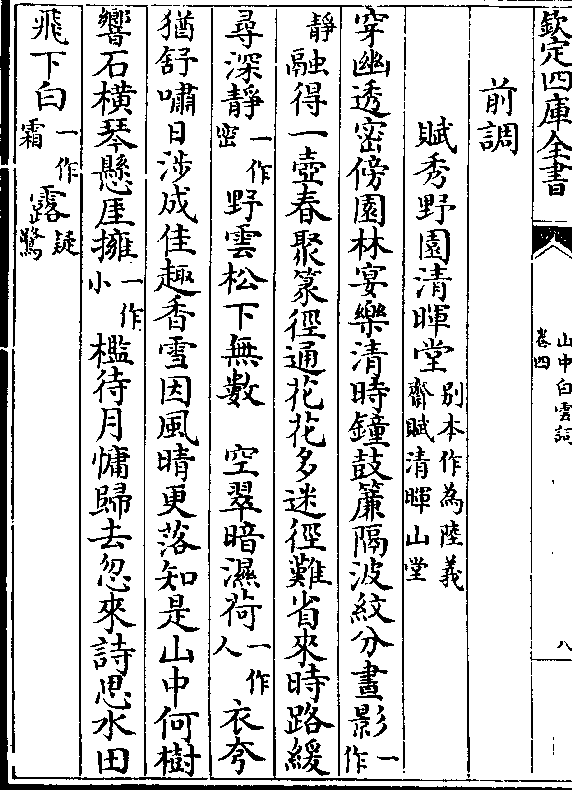 欽定四庫全書
山中白雲詞
卷四
八
前調
賦秀野園清暉堂別本作為陸義齋賦清暉山堂
穿幽透密傍園林宴樂清時鐘鼓簾隔波紋分晝影一作
靜融得一壺春聚篆徑通花花多迷徑難省來時路緩
尋深靜一作密野雲松下無數　空翠暗濕荷一作人衣兮
猶舒嘯日涉成佳趣香雪因風晴更落知是山中何樹
響石橫琴懸厓擁一作小檻待月慵歸去忽來詩思水田
飛下白一作霜露疑鷺